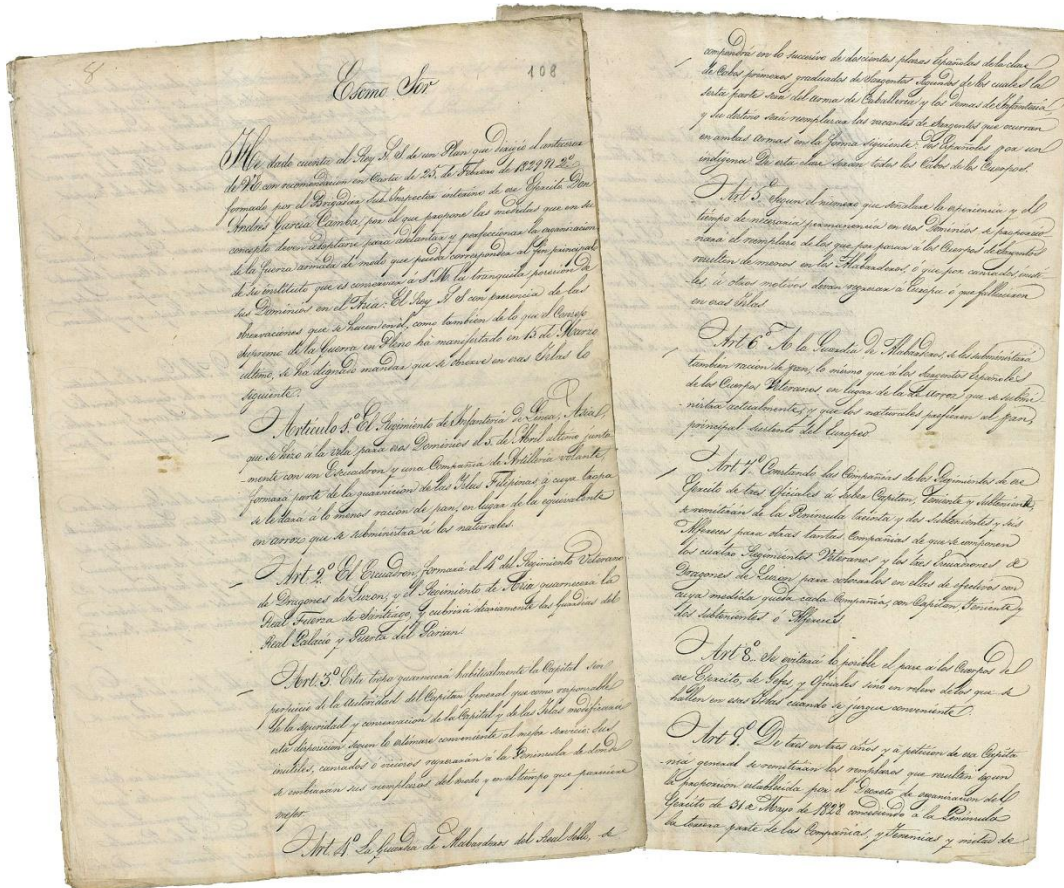 8
108
Escmo Sor
He dado cuenta al Rey N. S. de un Plan que dirigió el antecesor
de V.E. con recomendacion en Carta de 23, de Febrero de 1829 Nº 2º
formado por el Brigadier Sub-Inspector interino de ese Ejército Don
Andrés Garcia Camba, por el que propone las medidas que en su
concepto deven adoptarse para adelantar y perfeccionar la organizacion
de la fuerza armada de modo que pueda corresponder al fin principal
de su instituto que es conservar á S.M. la tranquila posesion de
sus Dominios en el Asia. El Rey N. S. con presencia de las
observaciones que se hacen en él, como tambien de lo que el Consejo
Supremo de la Guerra en Pleno ha manifestado en 15 de Marzo
ultimo, se ha dignado mandar que se observe en esas Islas lo
siguiente.
Articulo 1º El Regimiento de Infanteria de Linea, Asia,
que se hizo a la vela para esos Dominios el 3, de Abril ultimo junta
mente con un Escuadron y una Compañia de Artilleria volante,
formará parte de la guarnicion de las Islas Filipinas, a cuya tropa
se le dará á lo menos racion de pan, en lugar de la equivalente
en arroz que se subministra a los naturales.
Art. 2º El Escuadron, formará el 4º del Regimiento Veterano
de Dragones de Luzon, y el Regimiento de Asia guarnecerá la
Real Fuerza de Santiago, y cubrirá diariamente las Guardias del
Real Palacio y Puerta del Parian.
Art. 3º Esta tropa guarnecerá habitualmente la Capital sin
perjuicio de la Autoridad del Capitan General, que como responsable
de la seguridad y conservacion de la Capital y de las Islas modificará
esta disposicion segun lo estimare conveniente al mejor servicio. Sus
inutiles, cansados o viciosos regresarán á la Peninsula de donde
se embiarán sus remplazos del modo y en el tiempo que
Art. 4º La Guardia de Alabarderos del Real Sello, se
compondrá en lo sucesivo de doscientas plazas Españolas de la clase
de Cabos primeros graduados de Sargentos segundos de los cuales la
sexta parte será del arma de Caballeria y los demas de Infanteria,
y su destino será remplazar las vacantes de Sargentos que ocurran
en ambas armas en la forma siguiente: dos Españoles por un
indigena. De esta clase serán todos los Cabos de los Cuerpos.
Art 5º Segun el numero que señalare la esperiencia y el
tiempo de necesaria permanencia en esos Dominios se proporcio
nará el remplazo de los que por pasar a los Cuerpos de Sargentos
resulten de menos en los Alabarderos, ó que por cansados, inuti
les, ú otros motivos devan regresar á Europa o que fallecieren
en esas Islas
Art 6º A la Guardia de Alabarderos, se les subministrará
tambien racion de pan, lo mismo que á los Sargentos Españoles
de los Cuerpos Veteranos en lugar de la de arroz que se submi
nistra actualmente, y que los naturales prefieren al pan,
principal sustento del Europeo.
Art 7º Constando las Compañias de los Regimientos de ese
Ejército de tres Oficiales á saber Capitan, Teniente y Subteniente,
se remitirán de la Peninsula treinta y dos Subtenientes y seis
Alfereces para otras tantas Compañias de que se componen
los cuatro Regimientos Veteranos y los tres Escuadrones de
Dragones de Luzon para colocarlos en ellas de efectivos con
cuya medida queda cada Compañia, con Capitan, Teniente y
dos Subtenientes o Alfereces
Art 8º Se evitará lo posible el pase a los Cuerpos de
ese Ejército, de Gefes, y Oficiales sino en relevo de los que se
hallen en esas Islas cuando se juzgue conveniente.
Art 9º De tres en tres años y a peticion de esa Capita
nia general se remitirán los remplazos que resulten segun
la proporcion establecida por el Decreto de organizacion del
Ejército de 31 de Mayo de 1828 concediendo a la Peninsula
la tercera parte de las Compañias, y Tenencias y mitad de